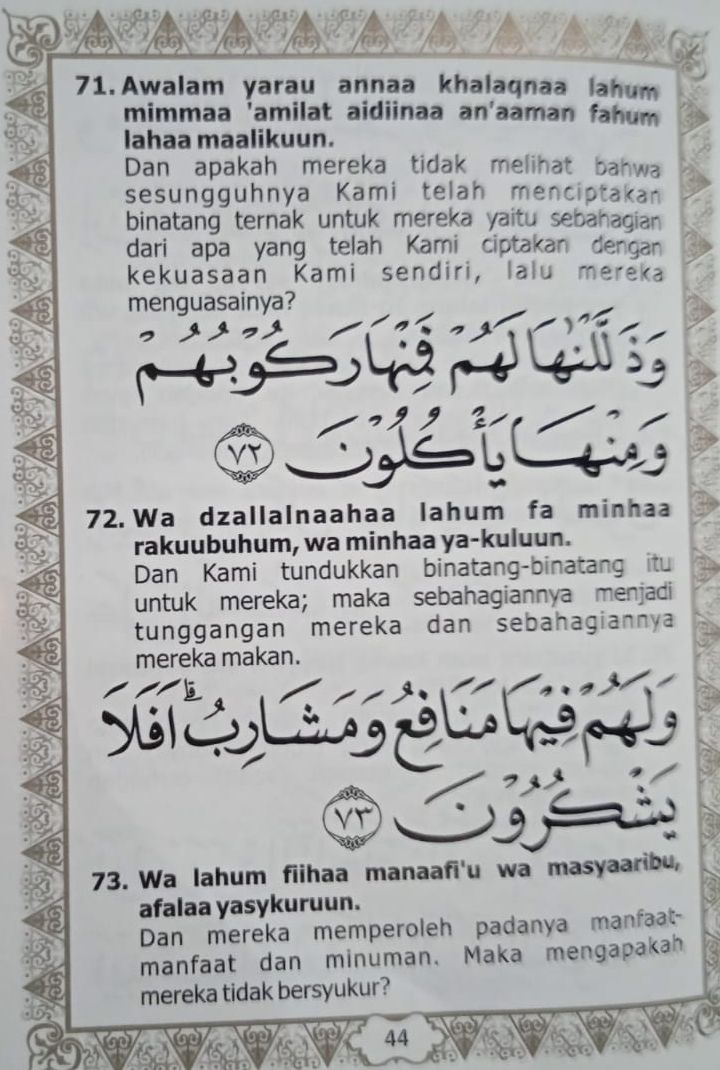 71. Awalam yarau annaa khalaqnaa lahum
mimmaa 'amilat aidiinaa an'aaman fahum
lahaa maalikuun.
Dan apakah mereka tidak melihat bahwa
sesungguhnya Kami telah menciptakan
binatang ternak untuk mereka yaitu sebahagian
dari apa yang telah Kami ciptakan dengan
kekuasaan Kami sendiri, lalu mereka
menguasainya?
وَذَلَّلْنٰهَا لَهُمْ فَمِنْهَا رَكُوْبُهُمْ
وَمِنْهَا يَأْكُلُوْنَ ٧٢
72. Wa dzallalnaahaa lahum fa minhaa
rakuubuhum, wa minhaa ya-kuluun.
Dan Kami tundukkan binatang-binatang itu
untuk mereka; maka sebahagiannya menjadi
tunggangan mereka dan sebahagiannya
mereka makan.
وَلَهُمْ فِيْهَا مَنَافِعُ وَمَشَارِبُ ۗ اَفَلَا
يَشْكُرُوْنَ ٧٣
73. Wa lahum fiihaa manaafi'u wa masyaaribu,
afalaa yasykuruun.
Dan mereka memperoleh padanya manfaat-
manfaat dan minuman. Maka mengapakah
mereka tidak bersyukur?
44